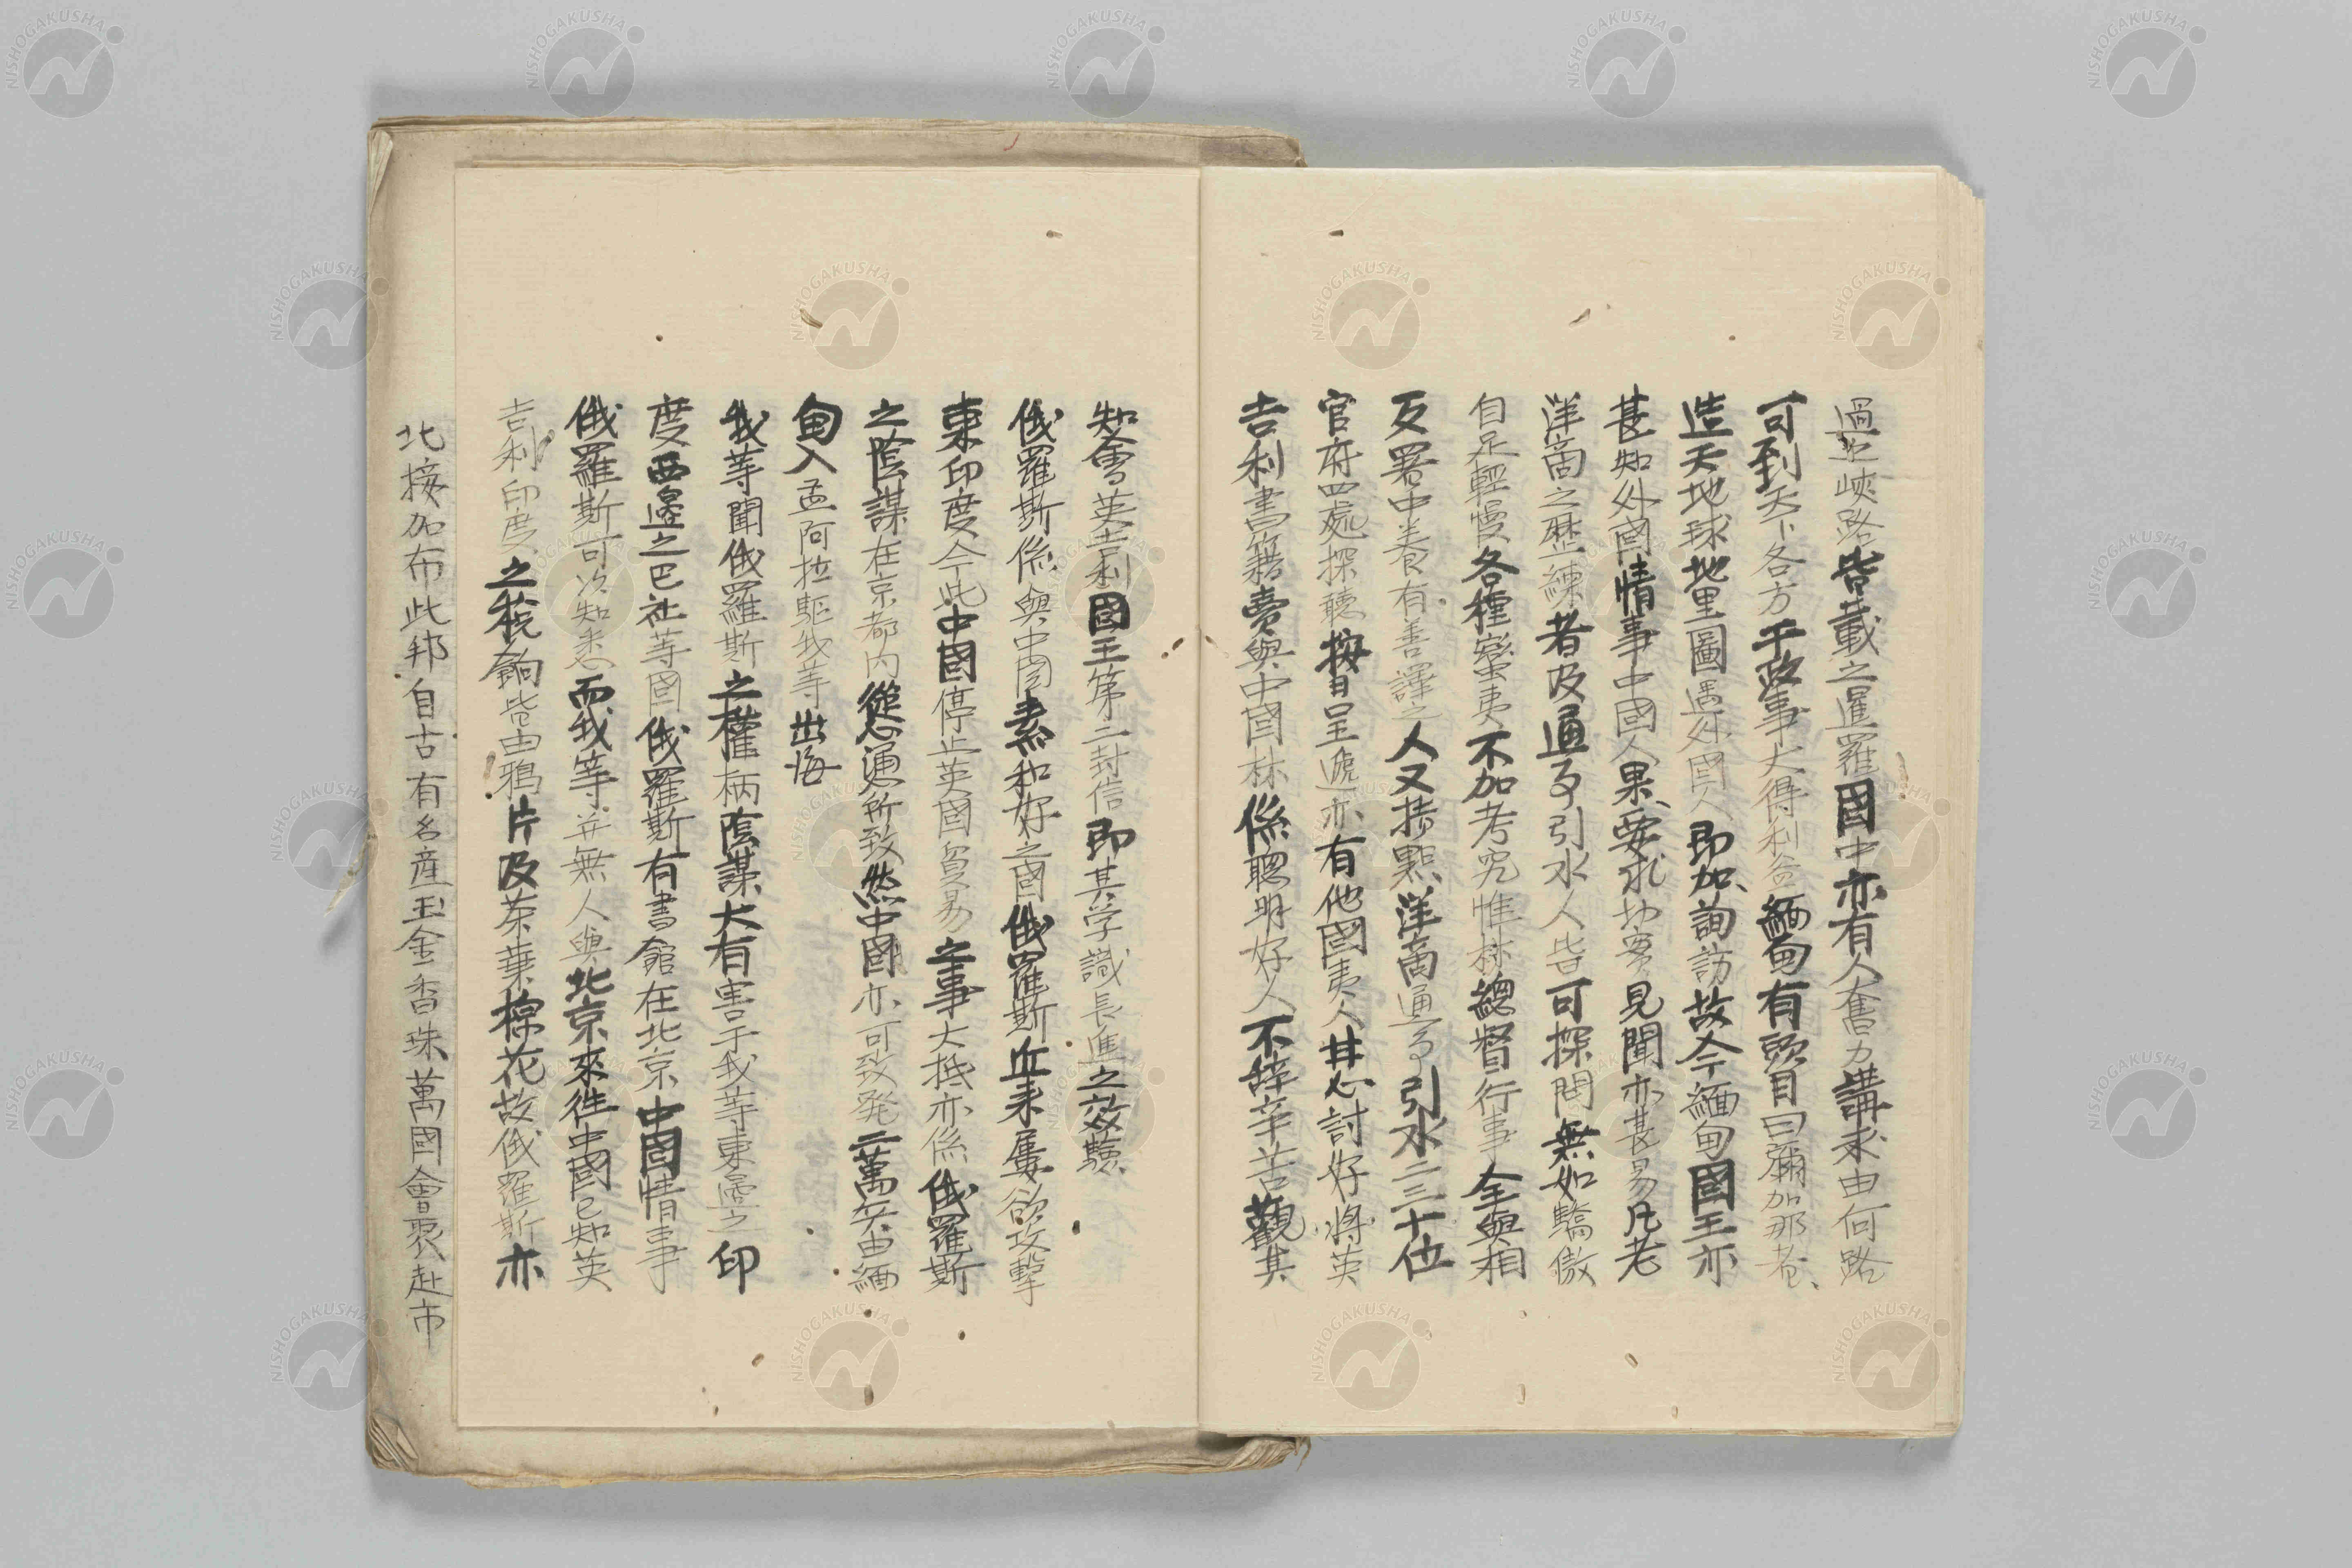 過是峽路皆載之暹羅國中亦有人奮力講求由何路
可到天下各方于政事大得利益緬甸有頭目曰彌加那者、
造天地球地里圖遇外國人即加詢訪故今緬甸國王亦
甚知外國情事中國人果要求切實見聞亦甚易凡老
洋商之歷練者及通事引水人皆可探問無如驕傲
自足輕慢各種蠻夷不加考究惟林總督行事全與相
反署中養有善譯之人又指點洋商通事引水二三十位
官府四處探聽按日呈遞亦有他國夷人甘心討好將英
吉利書籍賣與中國林係聰明好人不辞辛苦觀其
知會英吉利國王第二封信即其学識長進之效驗
俄羅斯係與中国素和好之國俄羅斯並未屢欲攻擊
東印度今此中國停止英國貿易之事大抵亦係俄羅斯
之陰謀在京都内慫慂所致然中國亦可致発二萬兵由緬
甸入孟阿拉驅我等出海
我等聞俄羅斯之權柄陰謀大有害于我等東邊之印
度西邊之巴社等國俄羅斯有書館在北京中國情事
俄羅斯可以知悉而我等並無人與北京來徃中國已知英
吉利印度之税餉皆由鴉片及茶葉棉花故俄羅斯亦
北接加布此邦自古有名産玉金香珠萬國會聚赴市
NISHOGAKUSHA